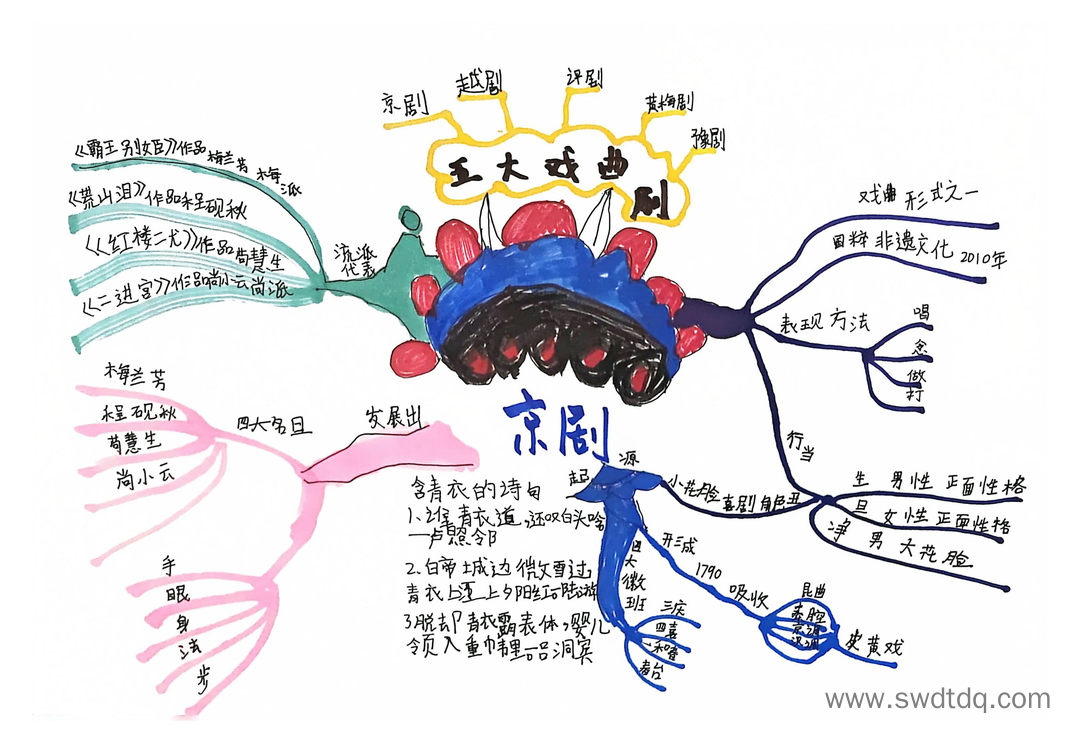 京剧
越剧
评剧
黄梅剧
豫剧
五大戏曲
剧
流派
代表
《霸王别姬》作品梅兰芳 梅派
《荒山泪》作品程砚秋
《红楼二尤》作品荀慧生
《二进宫》作品尚小云尚派
戏曲 形式之一
国粹 非遗文化 2010年
表现方法
唱
念
做
打
行当
生 男性 正面性格
旦 女性 正面性格
净 男 大花脸
小花脸 喜剧角色丑
京剧
发展出
四大名旦
梅兰芳
程砚秋
荀慧生
尚小云
手
眼
身
法
步
起源
四大徽班
三庆
四喜
春台
形成
1790
吸收
昆曲
秦腔
皮黄戏
含青衣的诗句
1、谁 青衣道,还叹白头吟
一卢照邻
2、白帝城边 微雪过,
青衣上 夕阳红 陆游
3、脱却青衣霸表体,婴儿
领入重帏 一吕洞宾
www.swdtdq.com